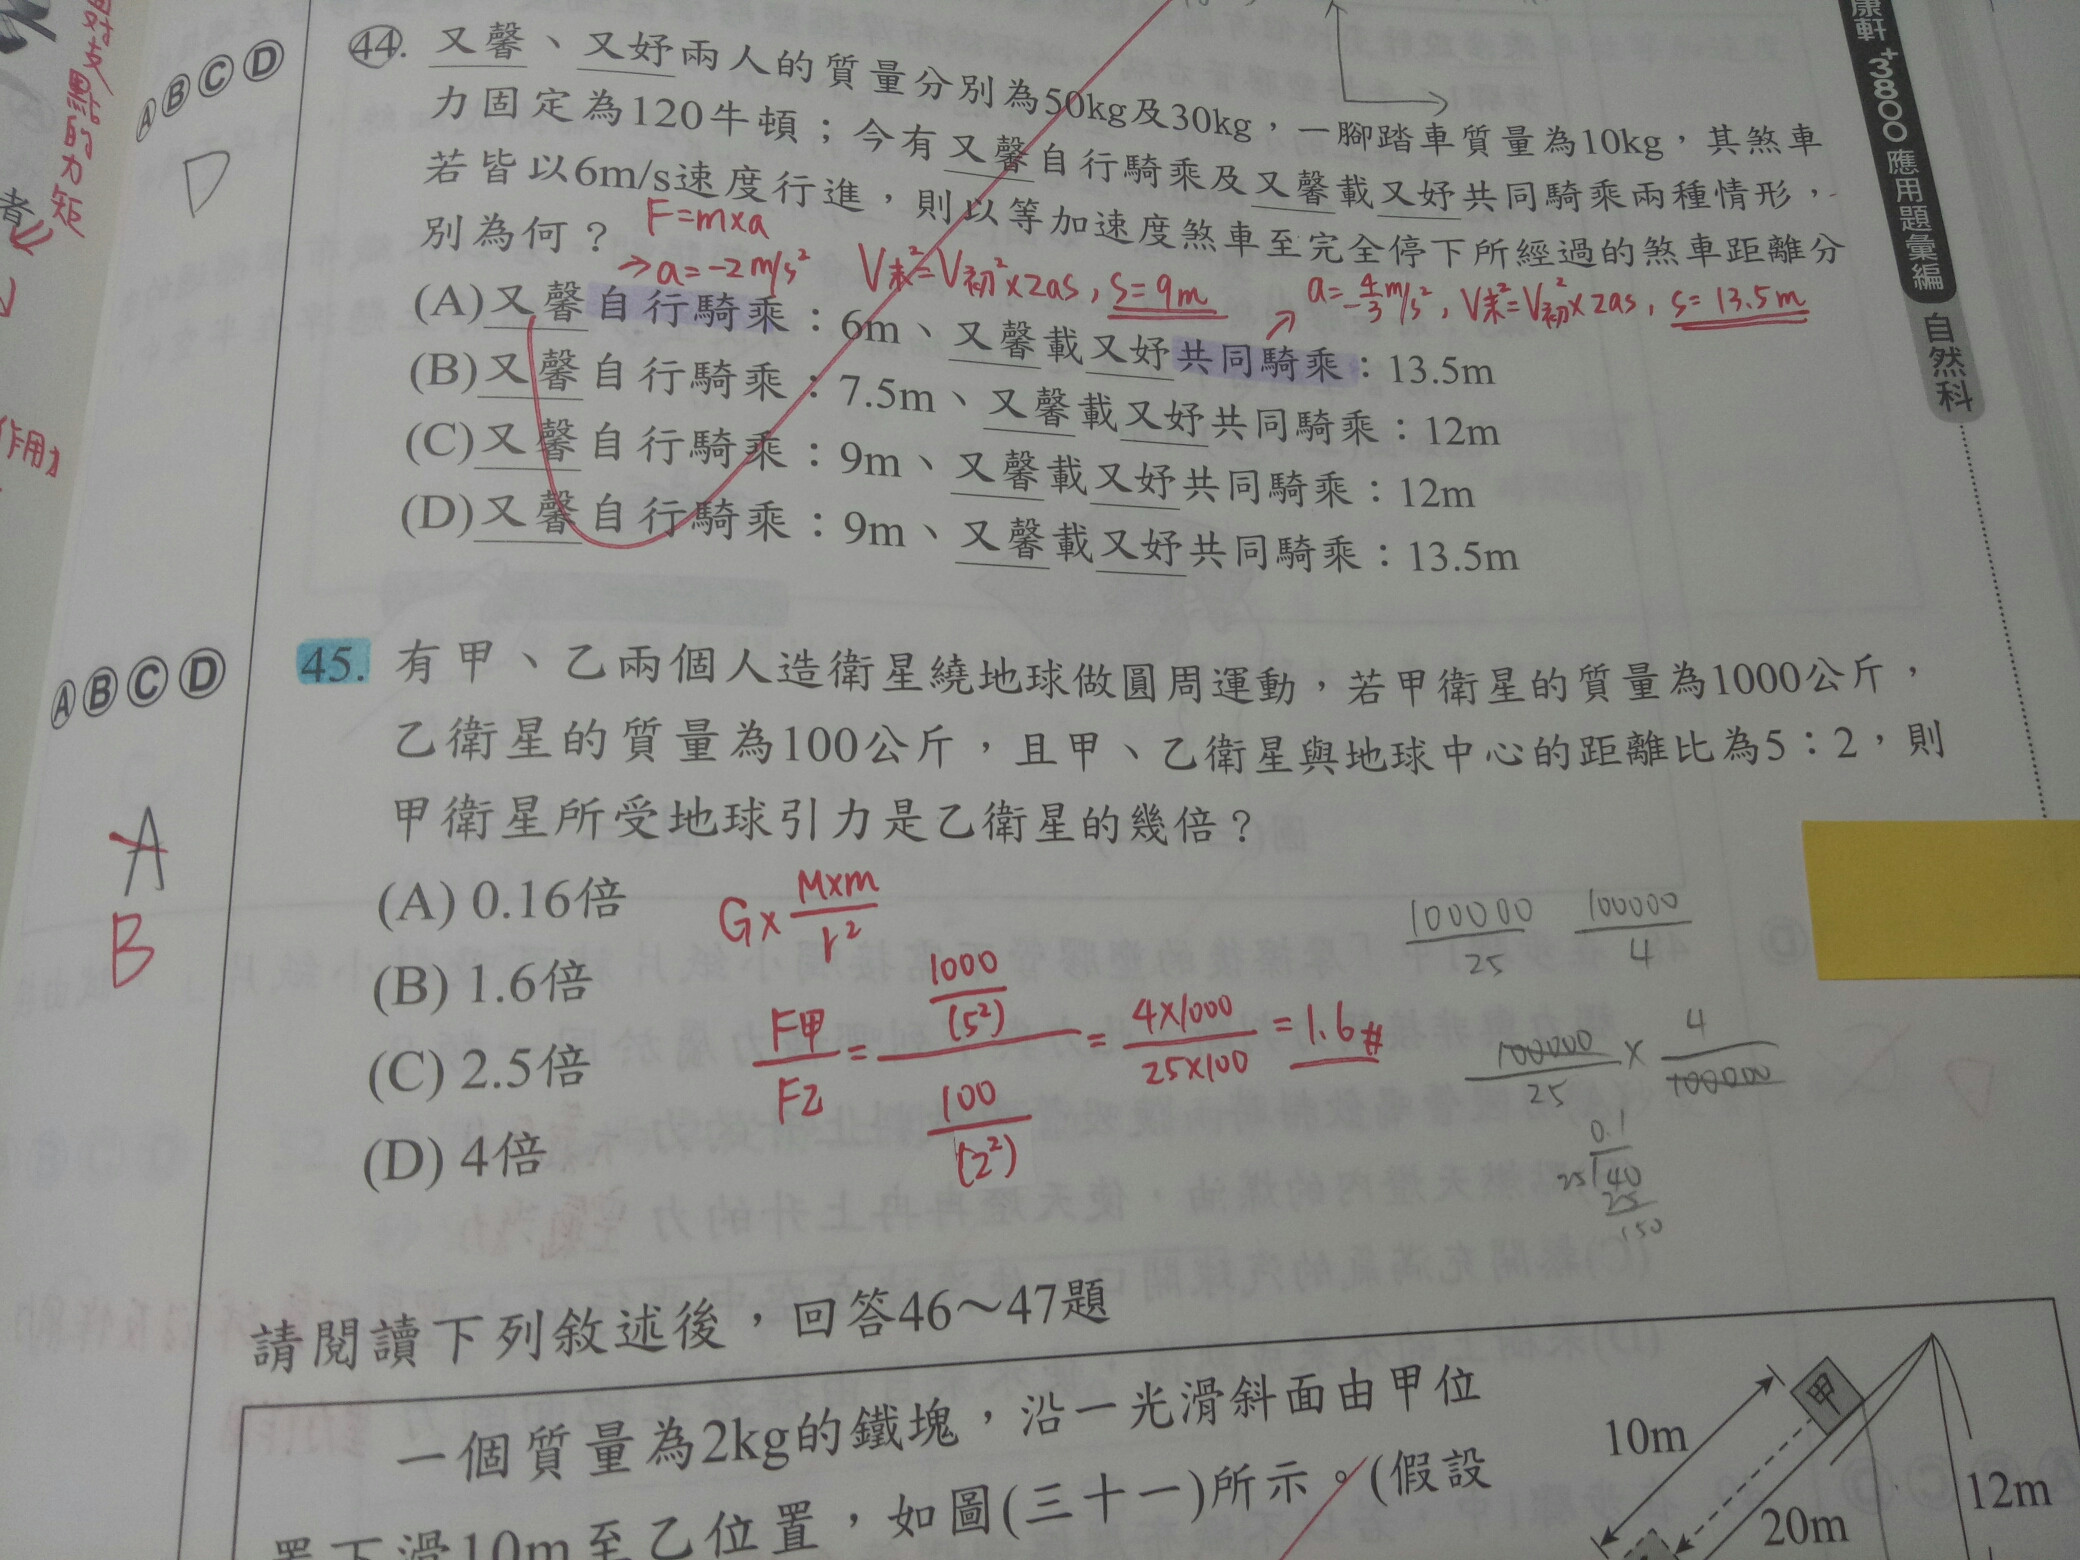 44. 又馨、又妤兩人的質量分別為50kg及30kg，一腳踏車質量為10kg，其煞車
力固定為120牛頓；今有又馨自行騎乘及又馨載又妤共同騎乘兩種情形，
若皆以6m/s速度行進，則以等加速度煞車至完全停下所經過的煞車距離分
別為何？
F=m×a
→a=-2m/s² V末²=V初²×2as, S=9m
a=-4/3 m/s², V末²=V初²×2as, S=13.5m
(A)又馨自行騎乘：6m、又馨載又妤共同騎乘：13.5m
(B)又馨自行騎乘：7.5m、又馨載又妤共同騎乘：12m
(C)又馨自行騎乘：9m、又馨載又妤共同騎乘：12m
(D)又馨自行騎乘：9m、又馨載又妤共同騎乘：13.5m
Ⓐ Ⓑ Ⓒ Ⓓ
D
Ⓐ Ⓑ Ⓒ Ⓓ
A
B
45. 有甲、乙兩個人造衛星繞地球做圓周運動，若甲衛星的質量為1000公斤，
乙衛星的質量為100公斤，且甲、乙衛星與地球中心的距離比為5：2，則
甲衛星所受地球引力是乙衛星的幾倍？
(A) 0.16倍
(B) 1.6倍
(C) 2.5倍
(D) 4倍
G× M×m/r²
F甲/F乙 = 1000/(5²) / 100/(2²) = 4×1000/25×100 = 1.6#
100000/25 100000/4
100000/25 × 4/100000
0.1
25 40
25
150
請閱讀下列敘述後，回答46～47題
一個質量為2kg的鐵塊，沿一光滑斜面由甲位
置下滑10m至乙位置，如圖(三十一)所示。(假設
甲
10m
20m
12m
康軒 +3800 應用題彙編 自然科
對支點的力矩
者
作用力